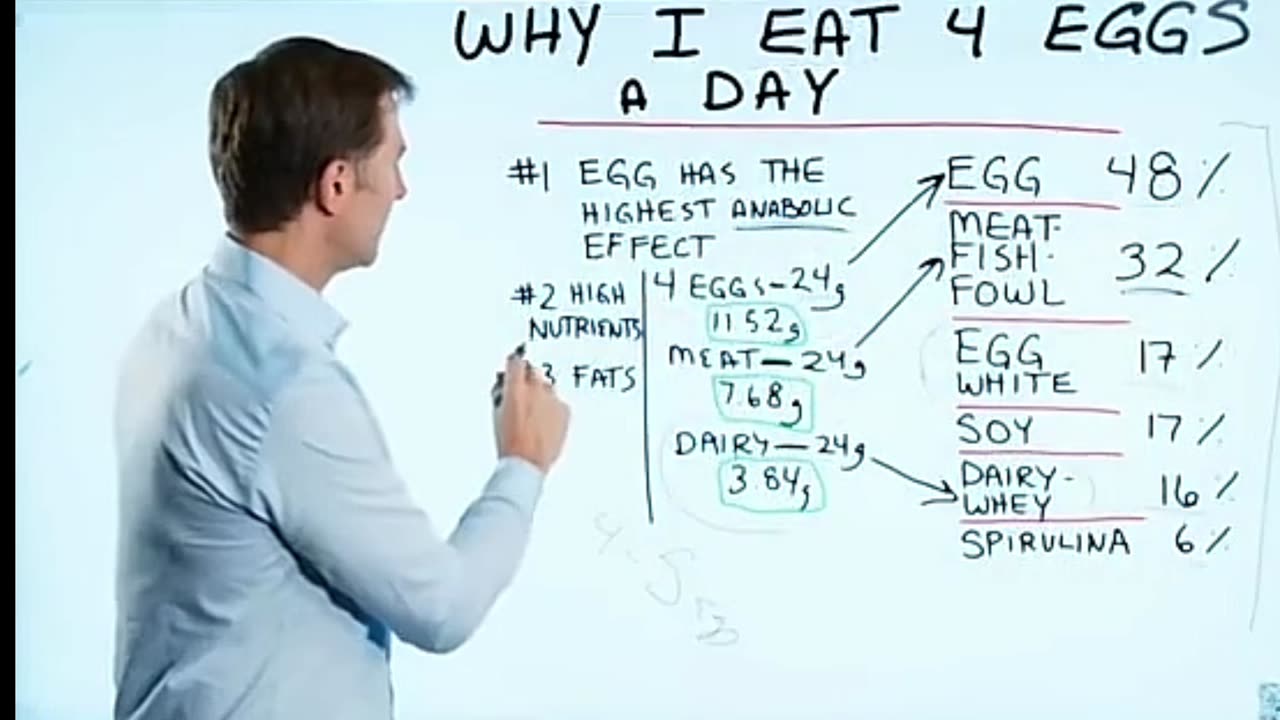 WHY I EAT 4 EGGS
A DAY
#1 EGG HAS THE
HIGHEST ANABOLIC
EFFECT
#2 HIGH
NUTRIENTS
3 FATS
4 EGGS-24g
11.52g
MEAT-24g
7.68g
DAIRY-24g
3.84g
EGG 48%
MEAT-
FISH-
FOWL 32%
EGG
WHITE 17%
SOY 17%
DAIRY-
WHEY 16%
SPIRULINA 6%